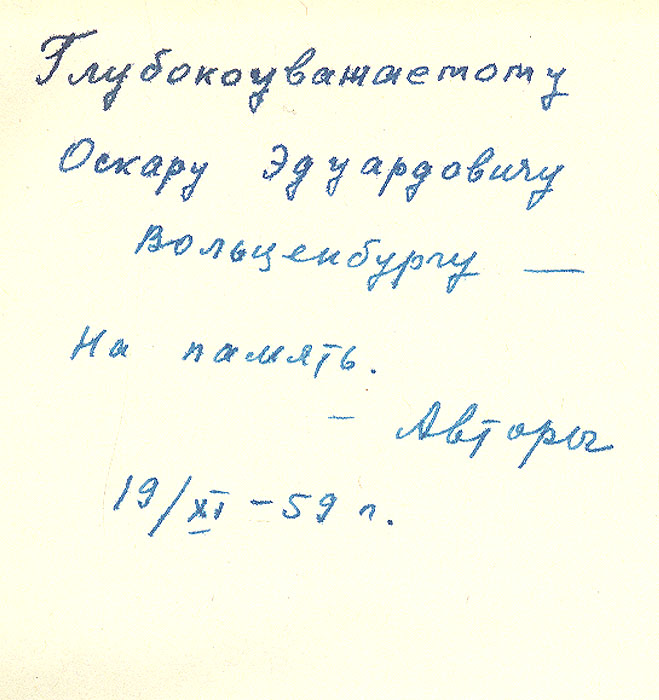 Глубокоуважаемому
Оскару Эдуардовичу
Вольценбургу —
На память.
– Авторы
19/XI – 59 г.